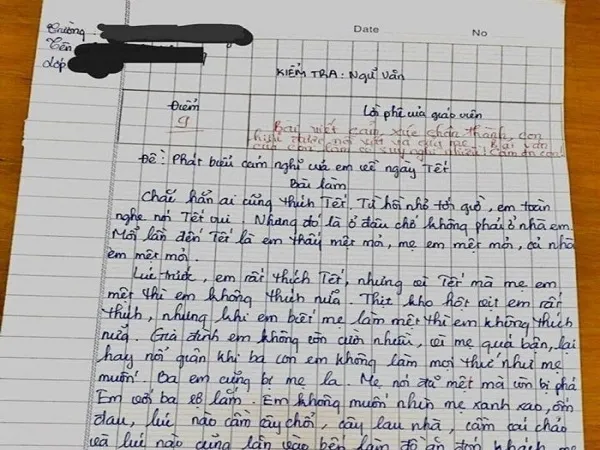 Trường:
Date No
Tên
Lớp
KIỂM TRA: NGỮ VĂN
Điểm Lời phê của giáo viên
9
Bài viết cảm xúc chân thành, con
hiểu được nỗi vất vả của mẹ. Bài văn
của con làm cô suy nghĩ nhiều! Cảm ơn con!
Đề: Phát biểu cảm nghĩ của em về ngày Tết
Bài làm
Chắc hẳn ai cũng thích Tết. Từ hồi nhỏ tới giờ, em toàn
nghe nói Tết vui. Nhưng đó là ở đâu chớ không phải ở nhà em.
Mỗi lần đến Tết là em thấy mệt mỏi, mẹ em mệt mỏi, cả nhà
em mệt mỏi.
Lúc trước, em rất thích Tết, nhưng vì Tết mà mẹ em
mệt thì em không thích nữa. Thịt kho hột vịt em rất
thích, nhưng khi em biết mẹ làm mệt thì em không thích
nữa. Gia đình em không còn cười nhiều, vì mẹ quá bận, lại
hay nổi giận khi ba con em không làm mọi thứ như mẹ
muốn. Ba em cũng bị mẹ la. Mẹ nói đã mệt mà còn bị phá
Em với ba sợ lắm. Em không muốn nhìn mẹ xanh xao, ốm
đau, lúc nào cầm cây chổi, cây lau nhà, cầm cái chảo
và lúc nào cũng lăn vào bếp làm đồ ăn đón khách mẹ